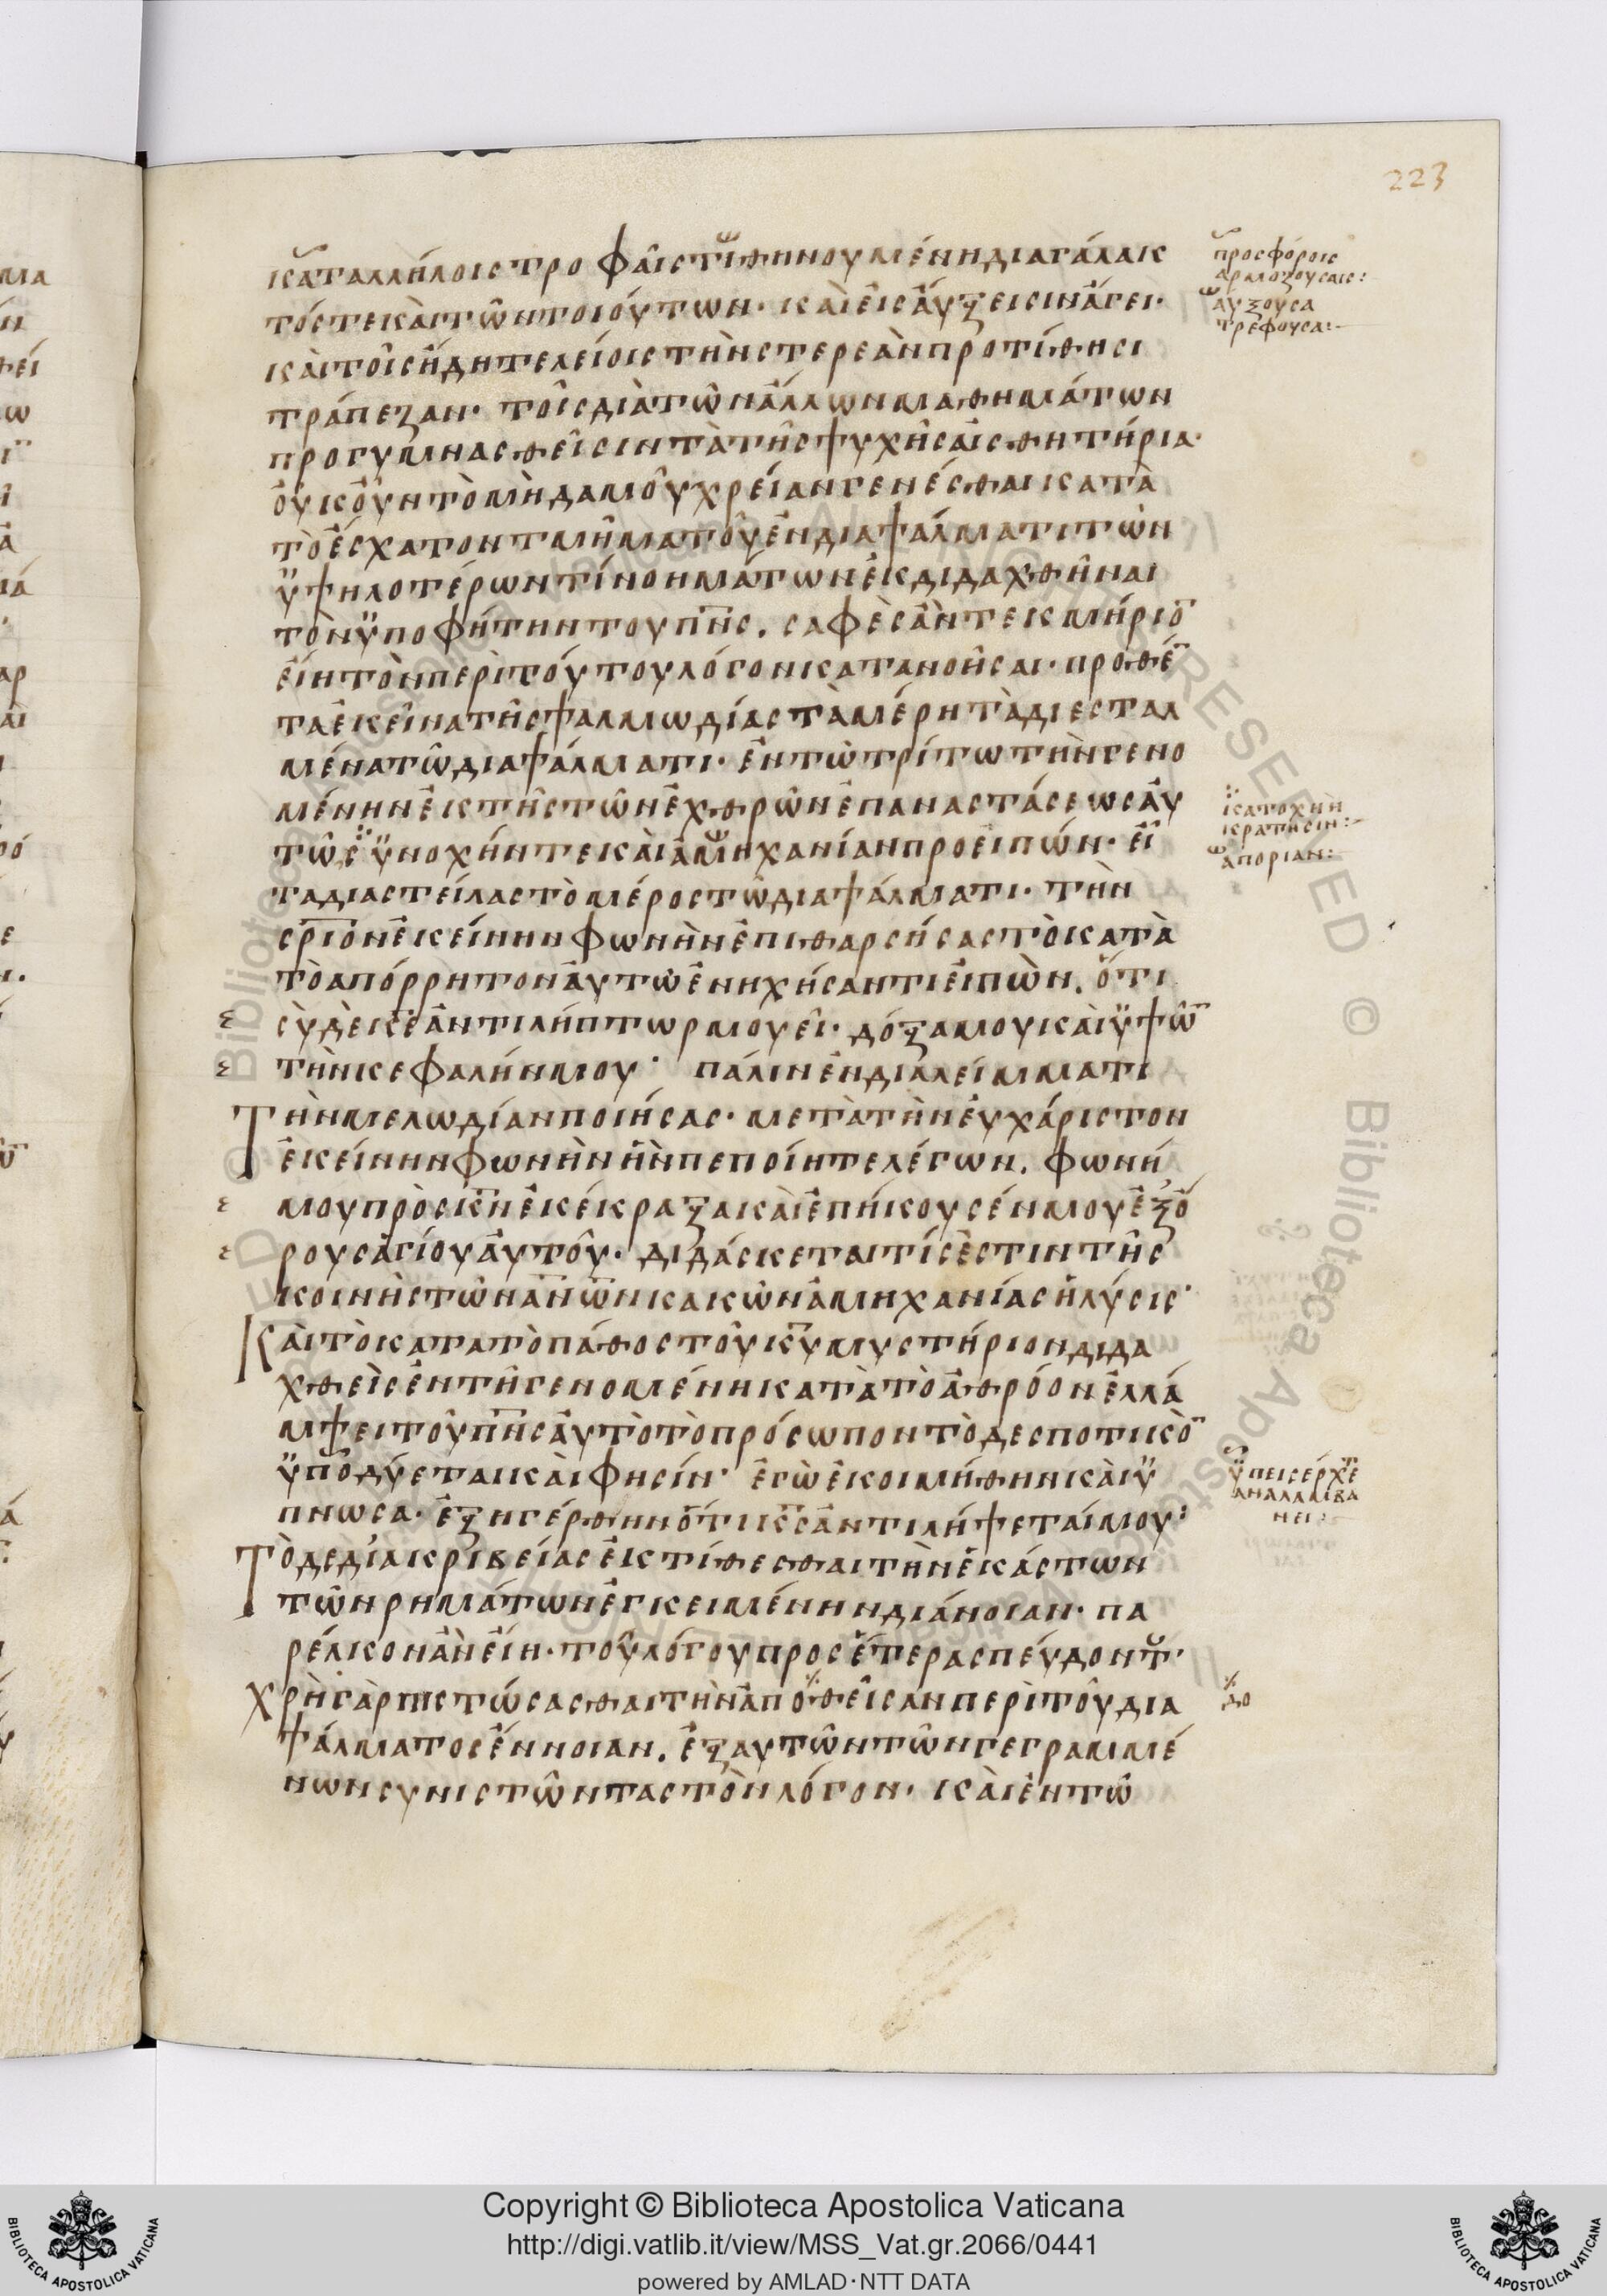 223
καταλλήλοις τροφαῖς τιθηνουμένη διαγάλακ
τός τε καὶ τῶν τοιούτων· καὶ εἰς αὔξεισιν ἄγει·
καὶ τοῖς ἤδη τελείοις τὴν στερεὰν προτίθησι
τράπεζαν· τοῖς διὰ τῶν ἄλλων μαθημάτων
προγυμνασθεῖσιν τὰ τῆς ψυχῆς αἰσθητήρια·
οὐκοῦν τὸ μὴδαμοῦ χρείαν γενέσθαι κατὰ
τὸ ἔσχατον τμῆμα τοῦ ἐν διαψάλματι τῶν
ὑψηλοτέρων τί νοημάτων ἐκδιδαχθῆναι
τὸν ὑποφήτην του πν̅ς. σαφὲς ἂν τεκμήριο̅
εἴη τὸν περὶ τούτου λόγον κατανοῆσαι· προσθέ̅
τα ἐκεῖνα τῆς ψαλμωδίας τὰ μέρη τὰ διεσταλ
μένα τῶ διαψάλματι· ἐν τῶ τρίτω τὴν γενο
μένην ἐκ τῆς τῶν ἐχθρῶν ἐπαναστάσεως αὐ
τῶ συνοχήν τε καὶ ἀμηχανίαν προειπών· εἶ
τα διαστείλας τὸ μέρος τῶ διαψάλματι· τὴν
σ̅ριον ἐκείνην φωνὴν ἐπιθαρσήσας τὸ κατὰ
τὸ απόρρητον αὐτῶ ἐνηχήσαντι εἰπὼν. ὅτι
σὺ δὲ κ̅ε ἀντιλήπτωρ μου εἶ· δόξα μου καὶ ὑψῶ̅
τὴν κεφαλήν μου· πάλιν ἐν διαλείμματι
Τὴν μελωδίαν ποιήσας· μετὰ τὴν εὐχάριστον
ἐκείνην φωνὴν ἣν πεποίητε λέγων. φωνή
μου πρὸς κ̅ν ἐκέκραξα καὶ ἐπήκουσέν μου ἐξ ὄ
ρους ἁγίου αὐτοῦ· διδάσκεται τίς ἐστιν τῆς
κοινῆς τῶν ἀν̅ω̅ν κακῶν ἀμηχανίας ἡ λύσις·
Καὶ τὸ κατα τὸ πάθος τοῦ κ̅υ μυστήριον διδα
χθεὶς ἐν τῆ γενομένη κατὰ τὸ ἀθρόον ἐλλά
μψει τοῦ πν̅ς αὐτὸ τὸ πρόσωπον τὸ δεσποτικὸ̅
ὑποδύεται καὶ φησίν· ἐγὼ ἐκοιμήθην καὶ ὕ
πνωσα· ἐξηγέρθην ὅτι κ̅ς ἀντιλήψεταί μου·
Τὸ δε δι ακριβείας ἐκτίθεσθαι τὴν ἑκάστων
τῶν ρημάτων ἐγκειμένην διάνοιαν· πα
ρέλκον ἂν εἴη· τοῦ λόγου προς ἕτερα σπεύδοντ·
Χρὴ γὰρ πιστώσασθαι τὴν ἀποθεῖσαν περὶ τοῦ δια
ψάλματος ἔννοιαν. ἐξ αυτῶν τῶν γεγραμμέ
νων συνιστῶντας τὸν λόγον· καὶ ἐν τῶ
προσφόροις
αρμοζουσαις:
αυξουσα
τρέφουσα:
κατοχὴν
κρατησιν:
απορίαν:
ὑπεισέρχετ
αναλαμβα
νει:
δο
Copyright © Biblioteca Apostolica Vaticana
http://digi.vatlib.it/view/MSS_Vat.gr.2066/0441
powered by AMLAD·NTT DATA